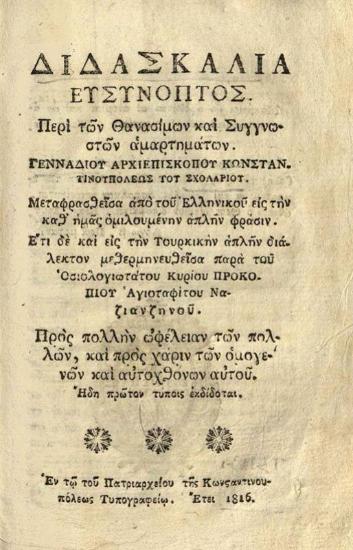 ΔΙΔΑΣΚΑΛΙΑ
ΕΥΣΥΝΟΠΤΟΣ.
Περὶ τῶν Θανασίμων καὶ Συγγνω-
στῶν ἁμαρτημάτων.
ΓΕΝΝΑΔΙΟΥ ΑΡΧΙΕΠΙΣΚΟΠΟΥ ΚΩΝΣΤΑΝ.
ΤΙΝΟΥΠΟΛΕΩΣ ΤΟΥ ΣΧΟΛΑΡΙΟΥ.
Μεταφρασθεῖσα ἀπὸ τοῦ Ἑλληνικοῦ εἰς τὴν
καθ' ἡμᾶς ὁμιλουμένην ἁπλῆν φράσιν.
Ετι δὲ καὶ εἰς τὴν Τουρκικὴν ἁπλῆν διά-
λεκτον μεθερμηνευθεῖσα παρὰ τοῦ
Ὁσιολογιωτάτου Κυρίου ΠΡΟΚΟ-
ΠΙΟΥ Ἁγιοταφίτου Να-
ζιανζηνοῦ.
Πρὸς πολλὴν ὠφέλειαν τῶν πολ-
λῶν, καὶ πρὸς χάριν τῶν ὁμογε-
νῶν καὶ αὐτοχθόνων αὐτοῦ.
Ἤδη πρῶτον τύποις ἐκδίδοται.
Ἐν τῷ τοῦ Πατριαρχείου τῆς Κωνσαντινου-
πόλεως Τυπογραφείῳ. Ἔτει 1816.